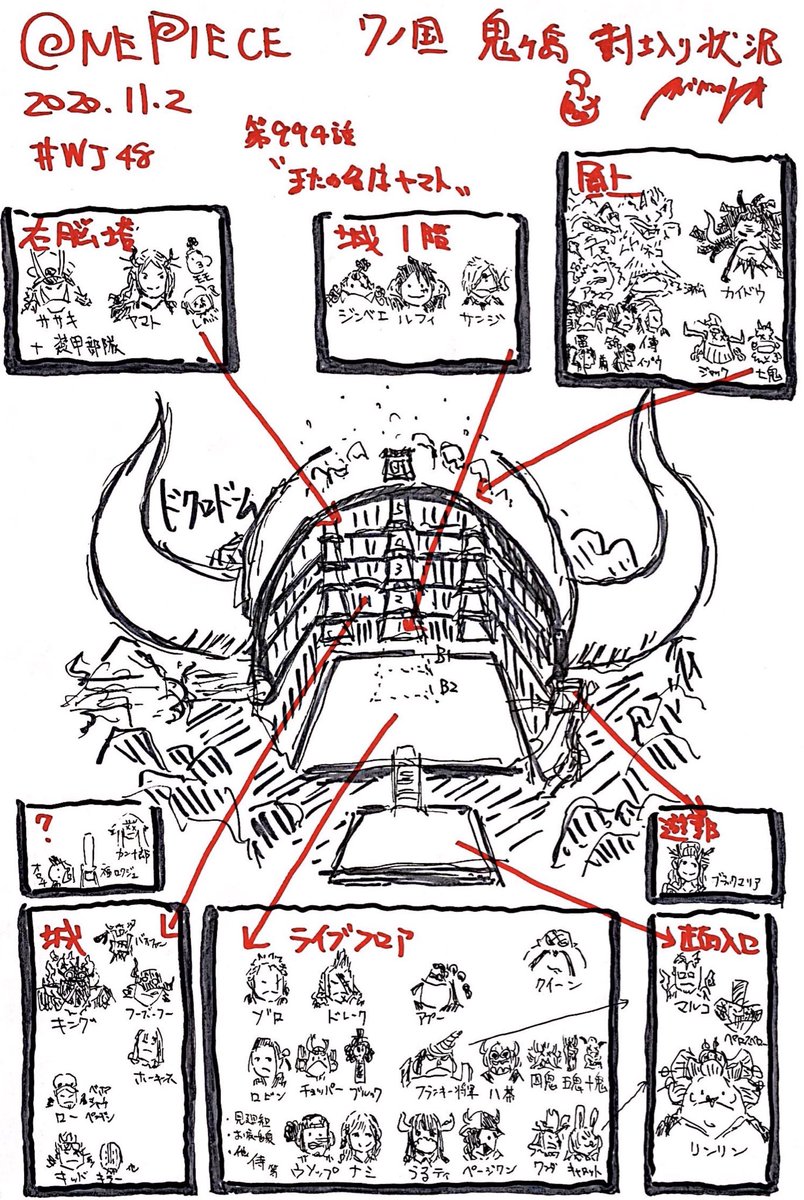 ONE PIECE ワノ国 鬼ヶ島 討ち入り状況
2020.11.2
#WJ48
第994話
"またの名はヤマト"
右脳塔
ササキ
ヤマト
+ 装甲部隊
城1階
ジンベエ
ルフィ
サンジ
屋上
イヌ
ネコ
カイドウ
錦
傳
イゾウ
ジャック
七鬼
ドクロドーム
5
4
3
2
1
B1
B2
?
カン十郎
福ロクジュ
遊郭
ブラックマリア
城
バスファン
キング
フーズ・フー
ホーキンス
ベポ
シャチ
ペンギン
ロー
キッド
キラー
他
ライブフロア
ゾロ
ドレーク
アプー
クイーン
ロビン
チョッパー
ブルック
フランキー将軍
八茶
四鬼
五鬼
十鬼
・見廻組
・お庭番衆
・他 侍等
ウソップ
ナミ
うるティ
ページワン
ワンダ
キャロット
正面入口
マルコ
ペロスペロー
リンリン